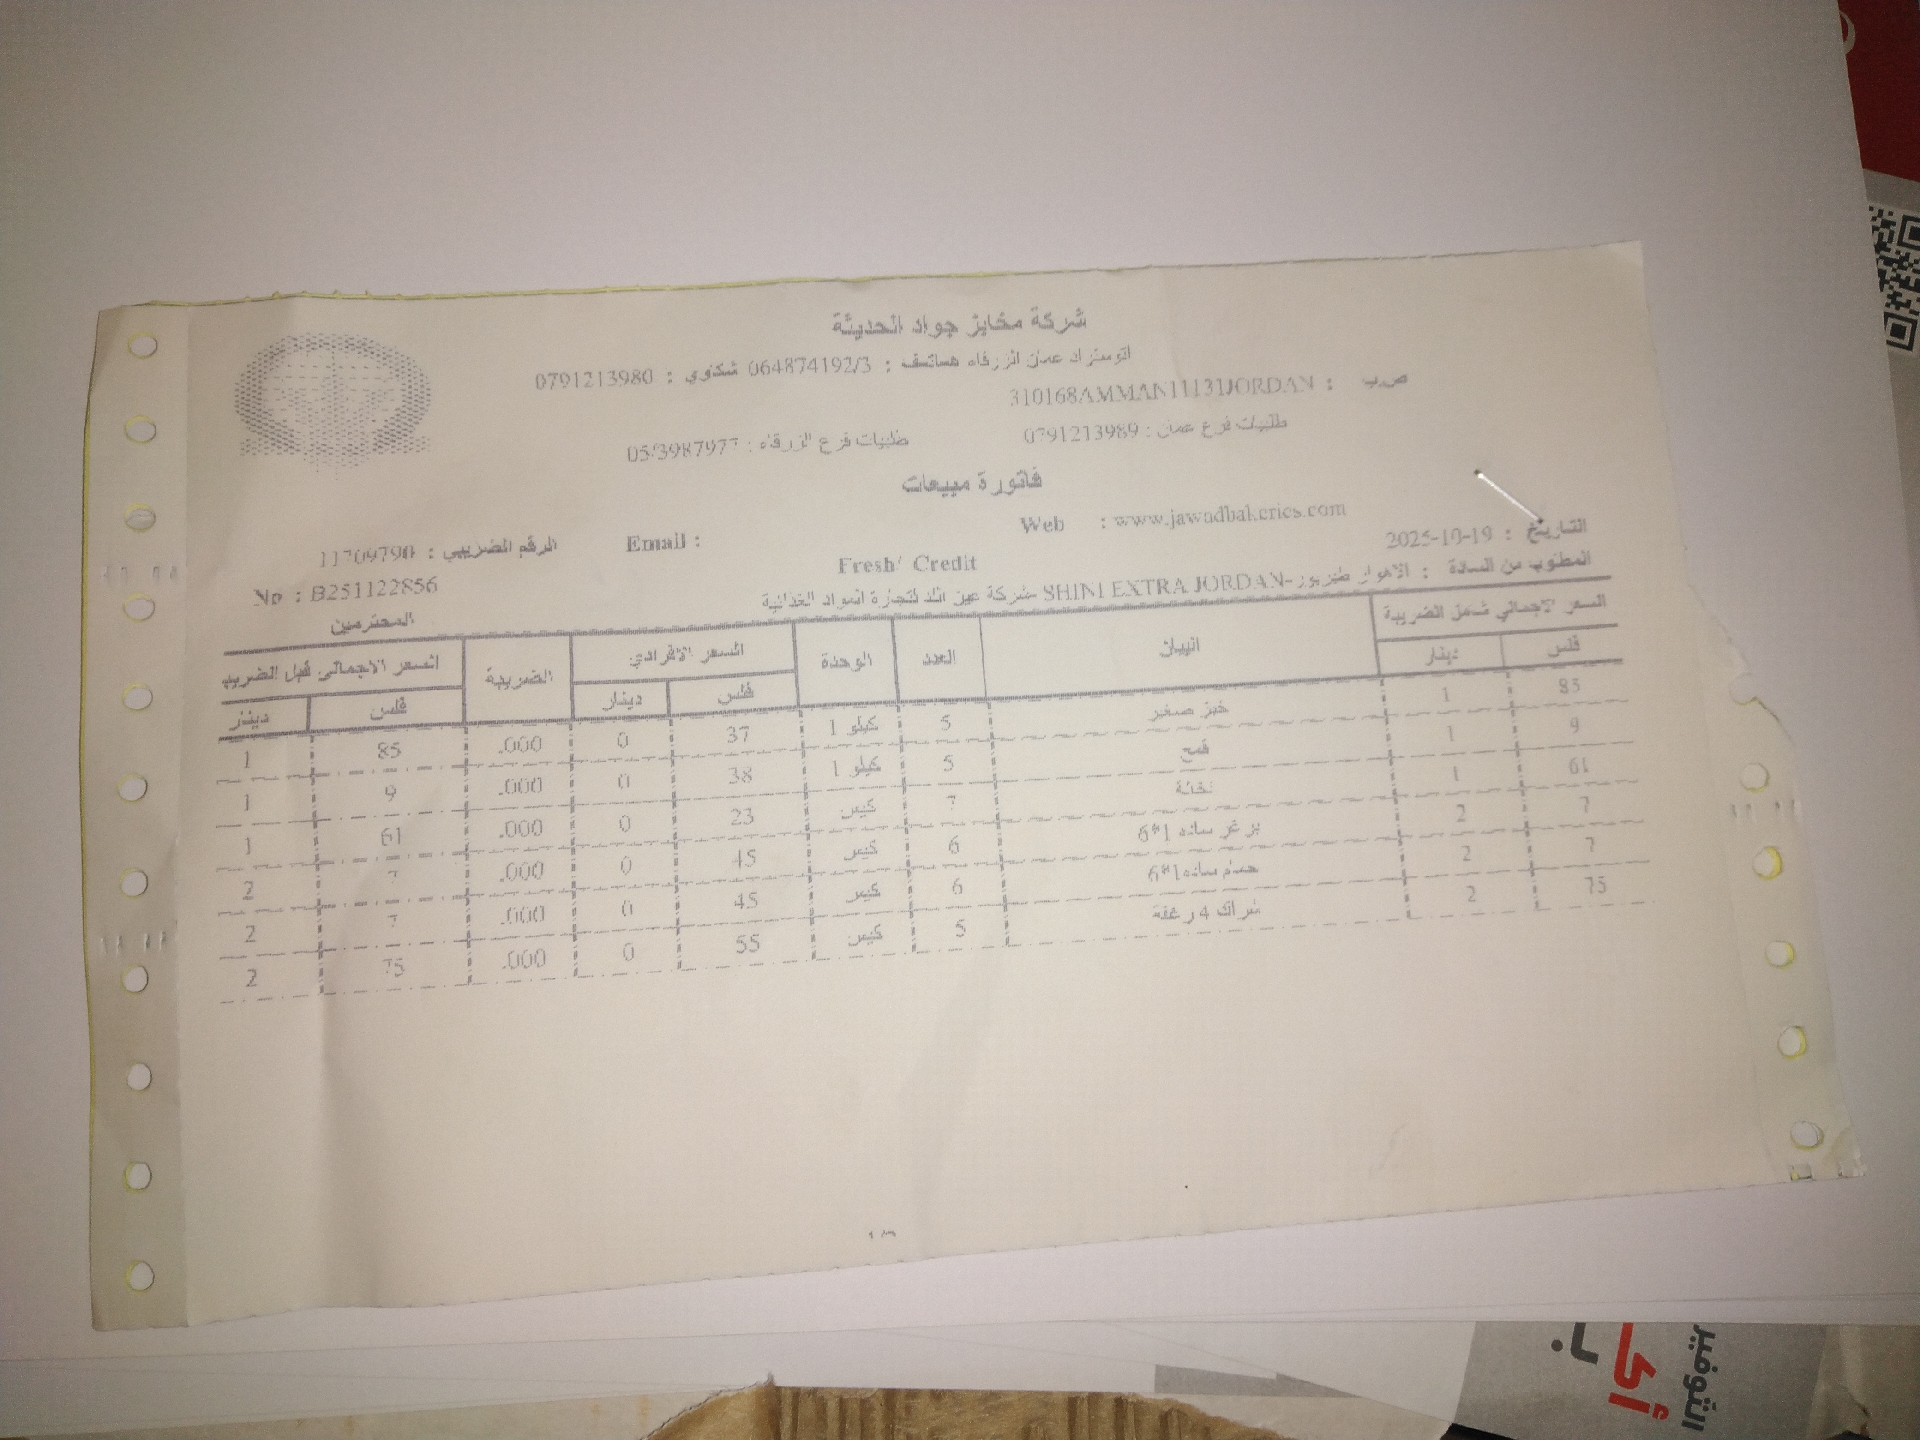 شركة مخابز جواد الحديثة
اتوستراد عمان الزرقاء هساتسف : 064874192/3 شكاوي : 0791213980
ص.ب : 310168AMMAN11131JORDAN
طلبيات فرع عمان : 0791213989 طلبيات فرع الزرقاء : 05/3987977
فاتورة مبيعات
Web : www.jawadbakeries.com Email : الرقم الضريبي : 11709790
التاريخ : 2025-10-19 Fresh/ Credit No : B251122856
المطلوب من السادة : SHINI EXTRA JORDAN- شركة عين الند لتجارة المواد الغذائية المحترمين
السعر الاجمالي شامل الضريبة البيان العدد الوحدة السعر الافرادي الضريبة السعر الاجمالي قبل الضريب
فلس دينار فلس دينار فلس دينار
85 1 خبز صغير 5 كيلو 1 37 0 .000 85 1
9 1 قمح 5 كيلو 1 38 0 .000 9 1
61 1 نخالة 7 كيس 23 0 .000 61 1
7 2 برغر ساده 1*6 6 كيس 45 0 .000 7 2
7 2 حمام ساده 1*6 6 كيس 45 0 .000 7 2
75 2 شراك 4 رغفة 5 كيس 55 0 .000 75 2
التوفير
أك